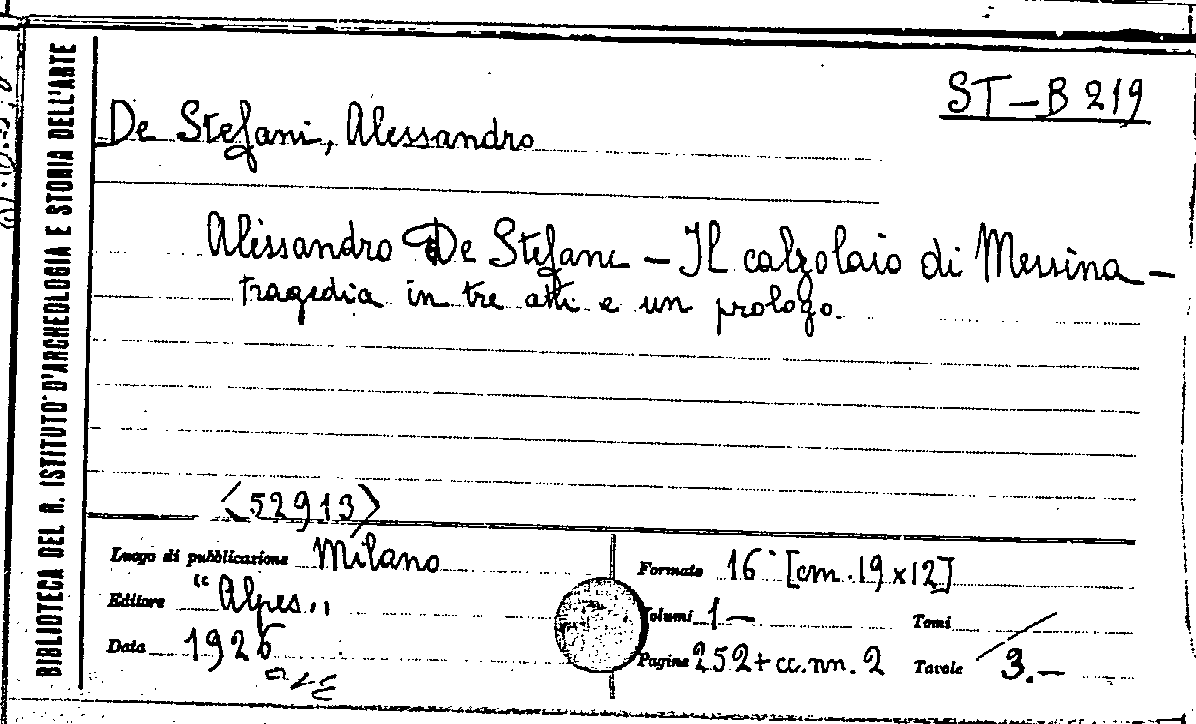 ST-B 219
De Stefani, Alessandro
Alessandro De Stefani - Il calzolaio di Messina -
tragedia in tre atti e un prologo.
<52913>
Luogo di pubblicazione Milano
Editore "Alpes"
Data
Formato 16° [cm. 19x12]
Volumi 1- Tomi
Pagine 252 + cc.nn. 2 Tavole 3.-
BIBLIOTECA DEL R. ISTITUTO D'ARCHEOLOGIA E STORIA DELL'ARTE